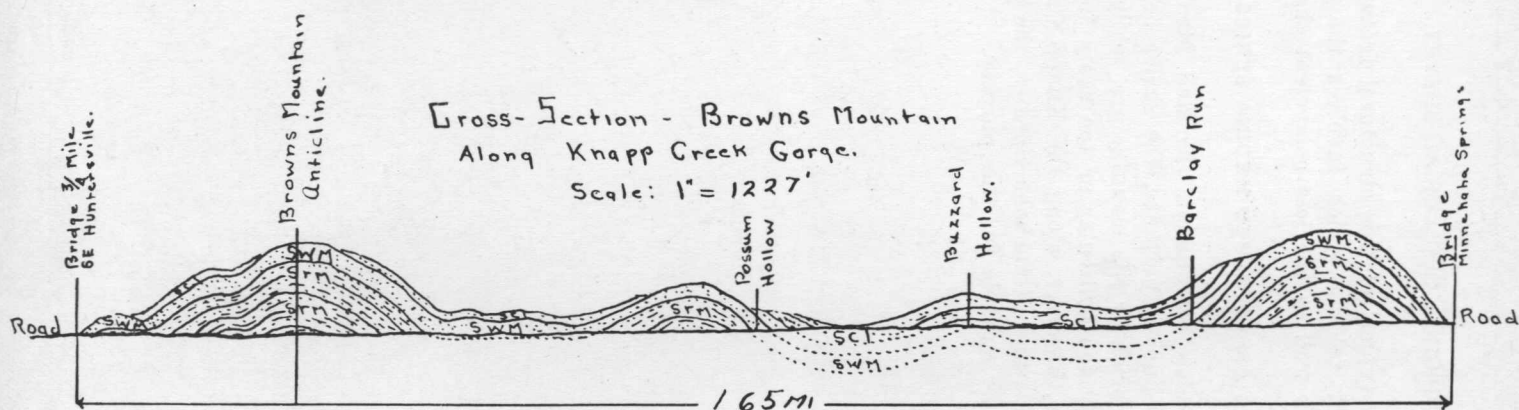 Cross-Section - Browns Mountain
Along Knapp Creek Gorge.
Scale: 1" = 1227'
Bridge 3/4 Mile
SE Huntersville.
Browns Mountain
Anticline.
Possum
Hollow
Buzzard
Hollow.
Barclay Run
Bridge
Minnehaha Springs
Road
SWM
Scl
SWM
Srm
Srm
Scl
SWM
Srm
Scl
SWM
Scl
SWM
Srm
Srm
Road
1 65 MI